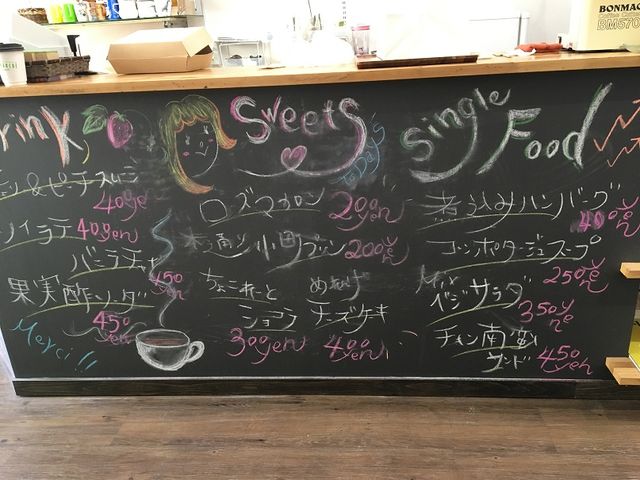 BONMAC
BM570
rink
&ピーチスムージ
40ye
ソイラテ 400yen
バニラチャ
450
果実酢ソーダ
450
Merci!!
Sweets
today's
ローズマカロン 200yen
プリン 200yen
ちょこれーと
ショコラ
300yen
チーズケーキ
400yen
Single Food
煮込みハンバーグ
400yen
コーンポタージュスープ
250yen
Mix
ベジサラダ
350yen
チキン南蛮
サンド 450yen